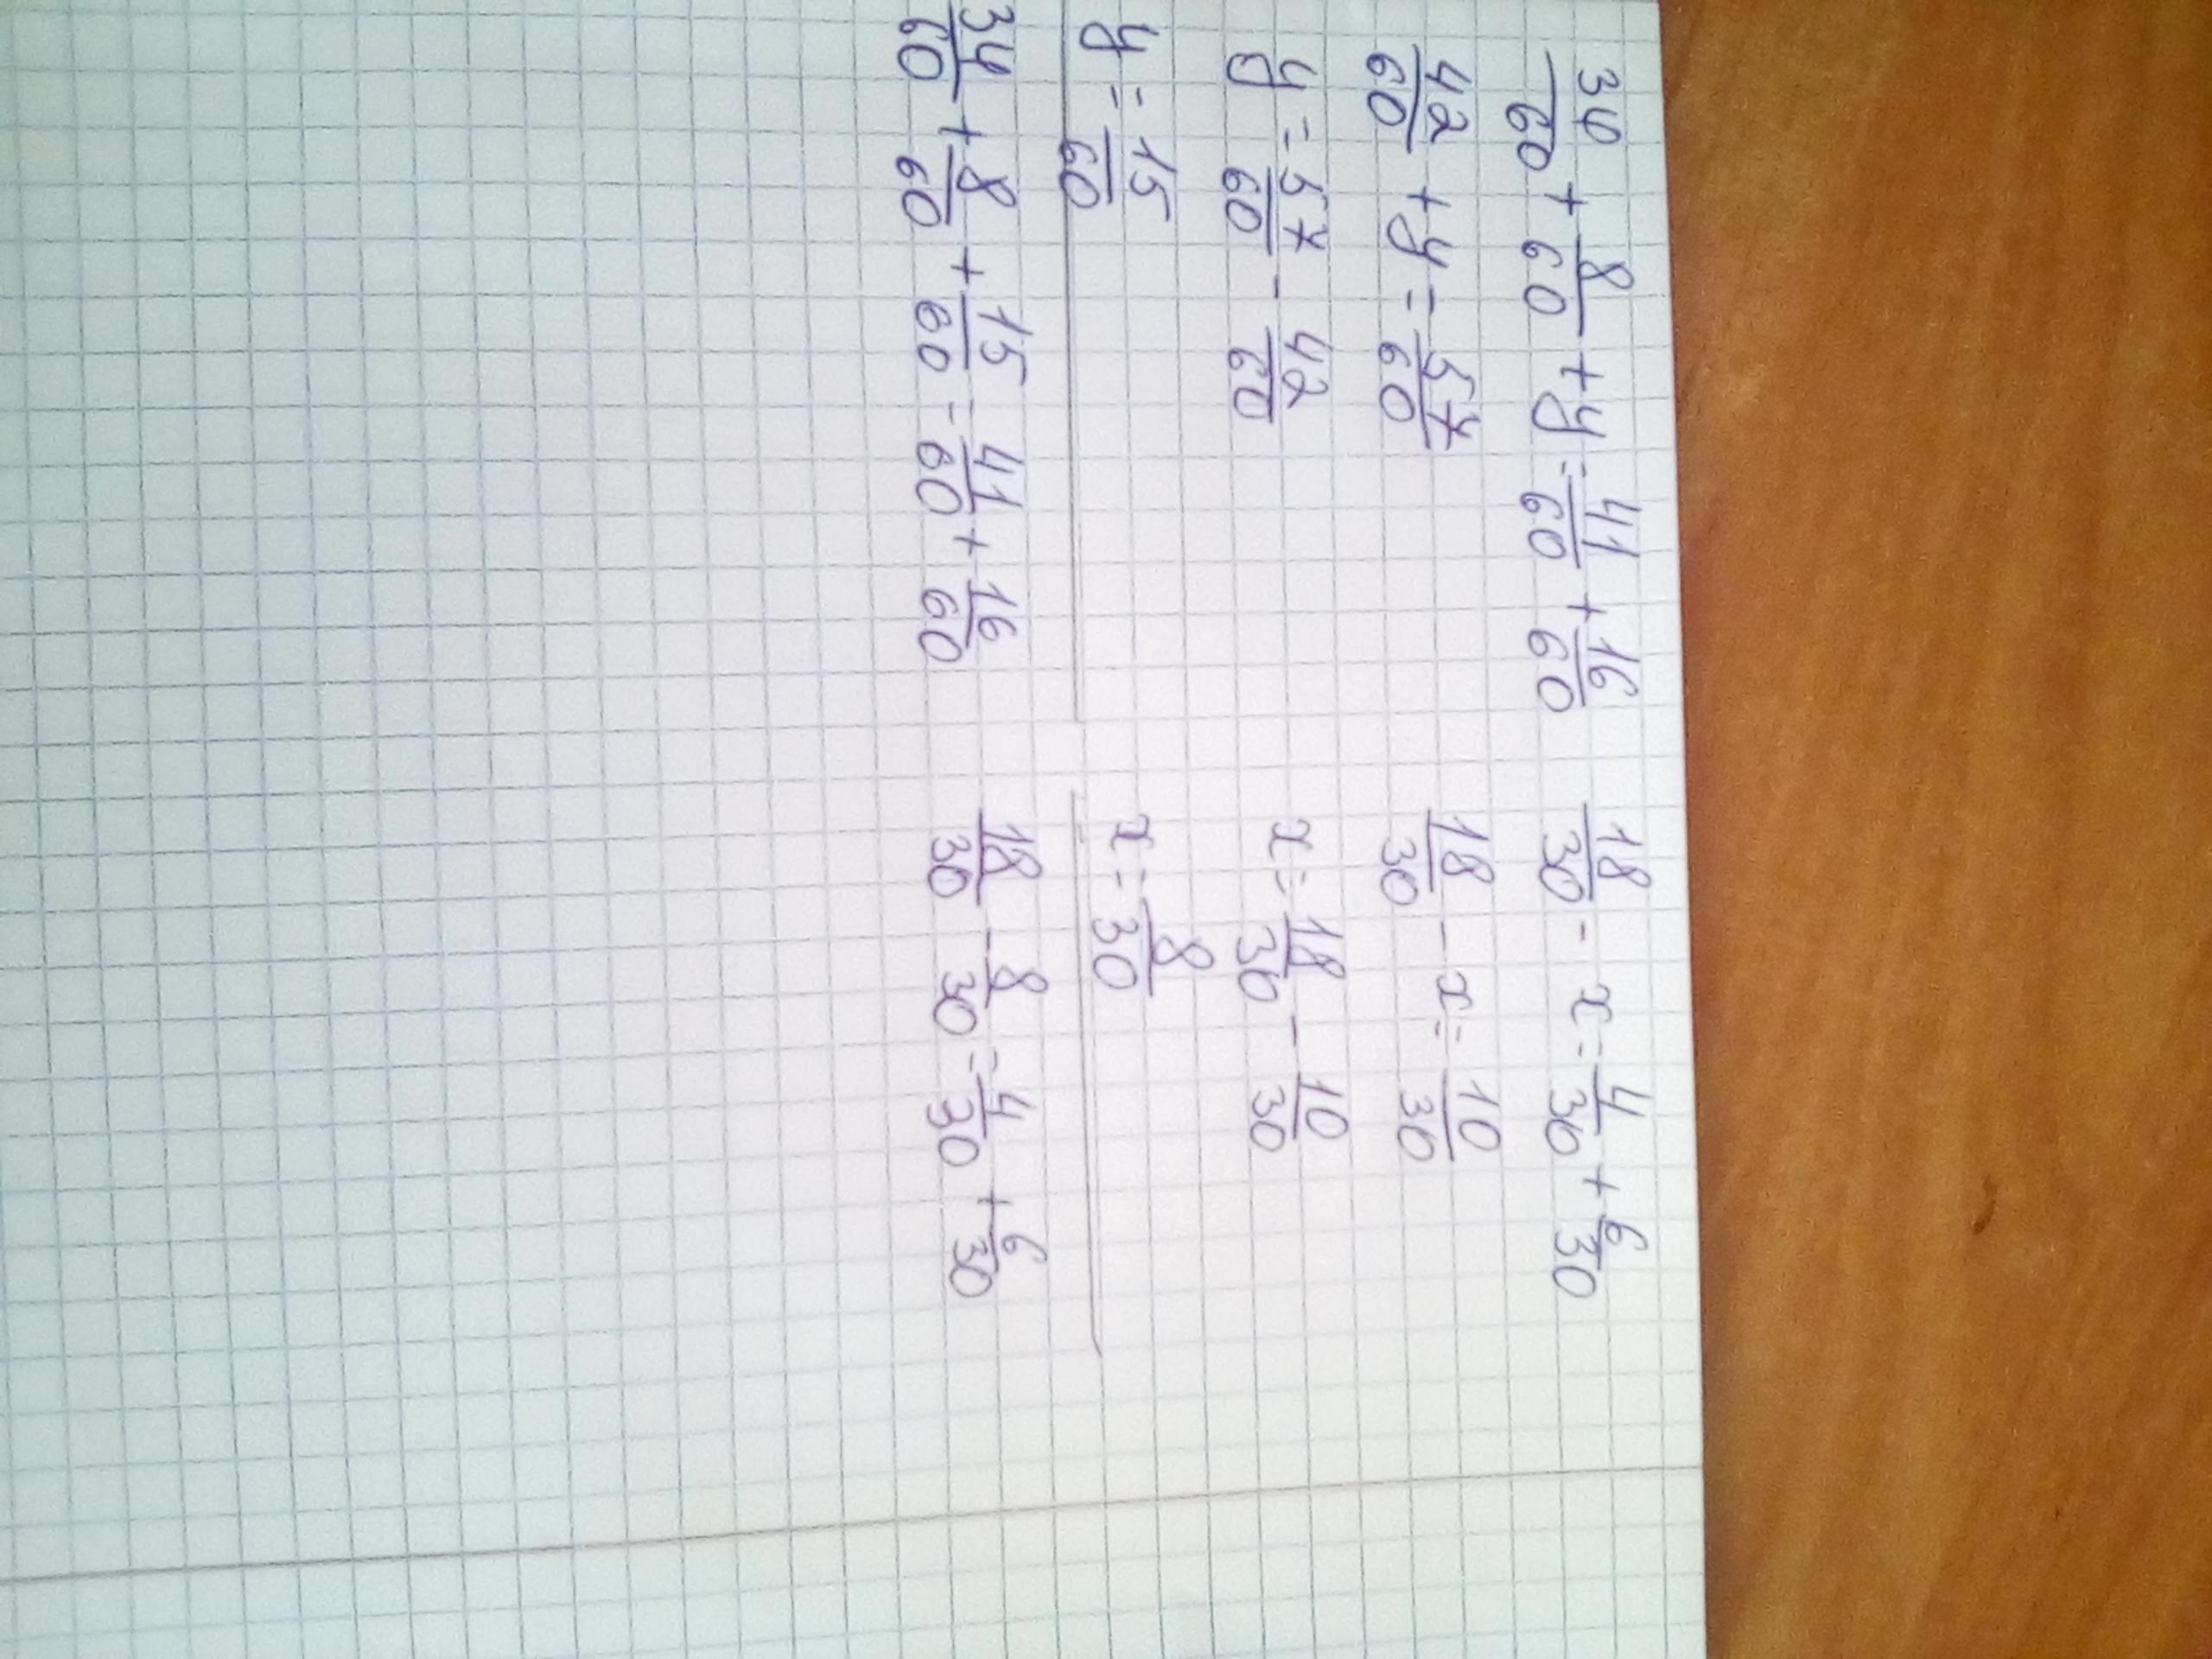 34/60 + 8/60 + y = 41/60 + 16/60
42/60 + y = 57/60
y = 57/60 - 42/60
y = 15/60
34/60 + 8/60 + 15/60 = 41/60 + 16/60
18/30 - x = 4/30 + 6/30
18/30 - x = 10/30
x = 18/30 - 10/30
x = 8/30
18/30 - 8/30 = 4/30 + 6/30